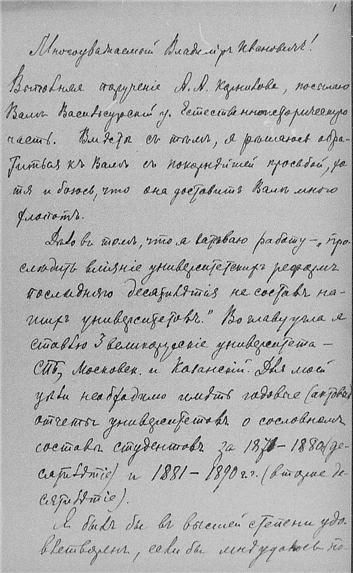 1
Многоуважаемый Владимiръ Ивановичъ!
Выполняя порученiе А. А. посылаю
Вамъ Васильсурскiй у. Естественноисторическую
часть. Вместѣ съ тѣмъ, я рѣшаюсь обра-
титься къ Вамъ съ покорнѣйшей просьбой, хо-
тя и боюсь, что она доставитъ Вамъ много
хлопотъ.
Дѣло въ томъ, что я затѣваю работу –„про-
слѣдить влiянiе университетскихъ реформъ
послѣдняго десятилѣтiя на составъ на-
шихъ университетовъ." Во главу угла я
ставлю 3 великорусскiе университета –
СПб, Московск. и Казанскiй. Для моей
цѣли необходимо имѣть годовые (актовые)
отчеты университетовъ о сословномъ
составѣ студентовъ за 1871–1880 (де-
сятилѣтiе) и 1881–1890 г.г. (второе де-
сятилѣтiе).
Я былъ бы въ высшей степени удо-
влетворенъ, если бы мнѣ удалось по-